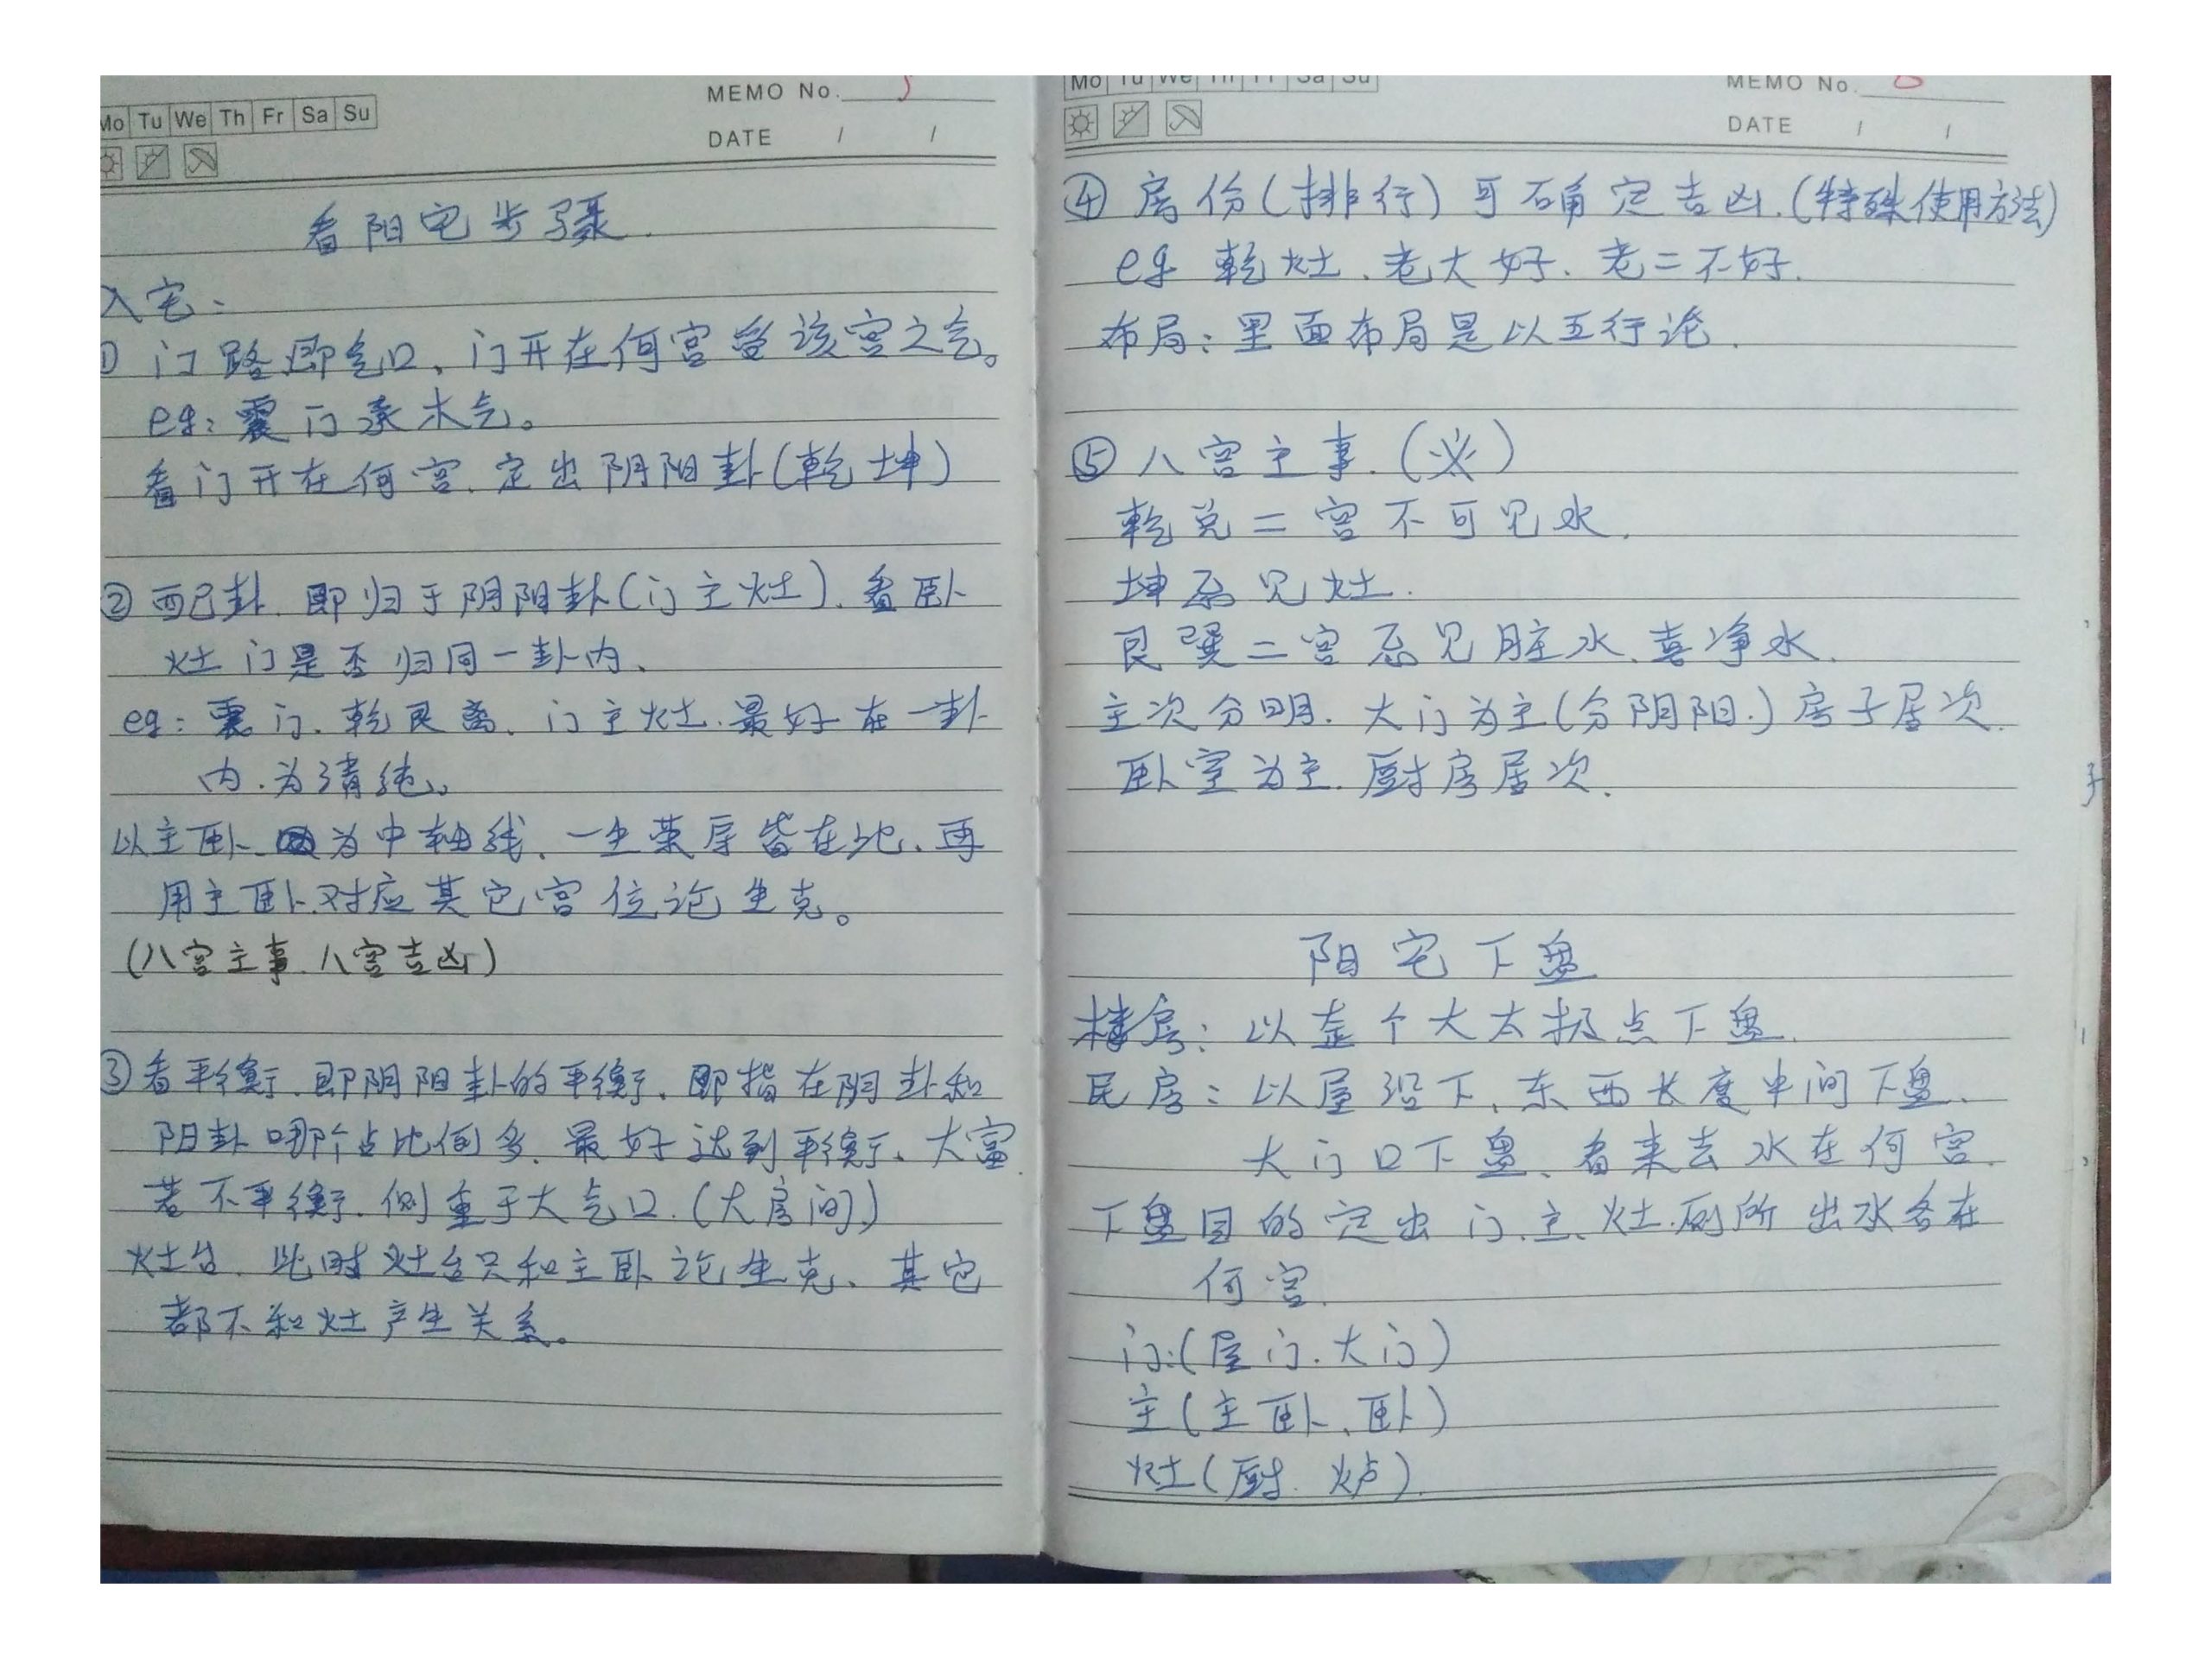 Mo Tu We Th Fr Sa Su
MEMO No. 5
DATE / /
看阳宅步骤.
入宅:
① 门路即气口、门开在何宫受该宫之气。
eg: 震门承木气。
看门开在何宫、定出阴阳卦(乾坤)
② 配卦、即归于阴阳卦(门主灶)、看卧
灶门是否归同一卦内、
eg: 震门、乾艮离、门主灶、最好在一卦
内、为清纯。
以主卧 为中轴线、一生荣辱皆在此、再
用主卧对应其它宫位论生克。
(八宫主事、八宫吉凶)
③ 看平衡、即阴阳卦的平衡、即指在阴卦和
阳卦哪个占比例多、最好达到平衡、大富.
若不平衡、侧重于大气口.(大房间)
灶台、此时灶台只和主卧论生克、其它
都不和灶产生关系。
Mo Tu We Th Fr Sa Su
MEMO No. 6
DATE / /
④ 房份(排行)可确定吉凶.(特殊使用方法)
eg 乾灶、老大好、老二不好.
布局: 里面布局是以五行论.
⑤ 八宫主事.(必)
乾兑二宫不可见水.
坤忌见灶.
艮巽二宫忌见脏水、喜净水.
主次分明. 大门为主(分阴阳.)房子居次.
卧室为主. 厨房居次.
阳宅下盘
楼房: 以整个大太极点下盘.
民房: 以屋沿下、东西长度中间下盘、
大门口下盘、看来去水在何宫.
下盘目的定出门、主、灶.厕所出水各在
何宫.
门:(屋门.大门)
主(主卧、卧)
灶(厨. 炉).